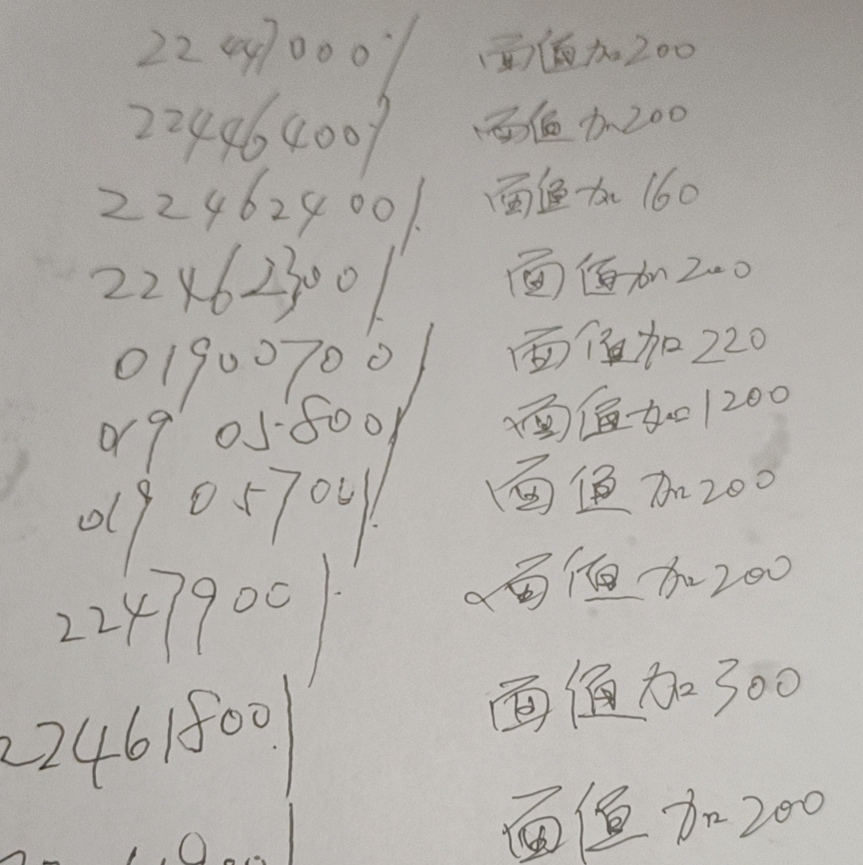 22447000% 面值加200
22446400% 面值加200
22462400% 面值加160
22462300% 面值加200
01900700% 面值加220
019 05800% 面值加1200
019 05700% 面值加200
2247900% 面值加200
22461800% 面值加300
面值加200